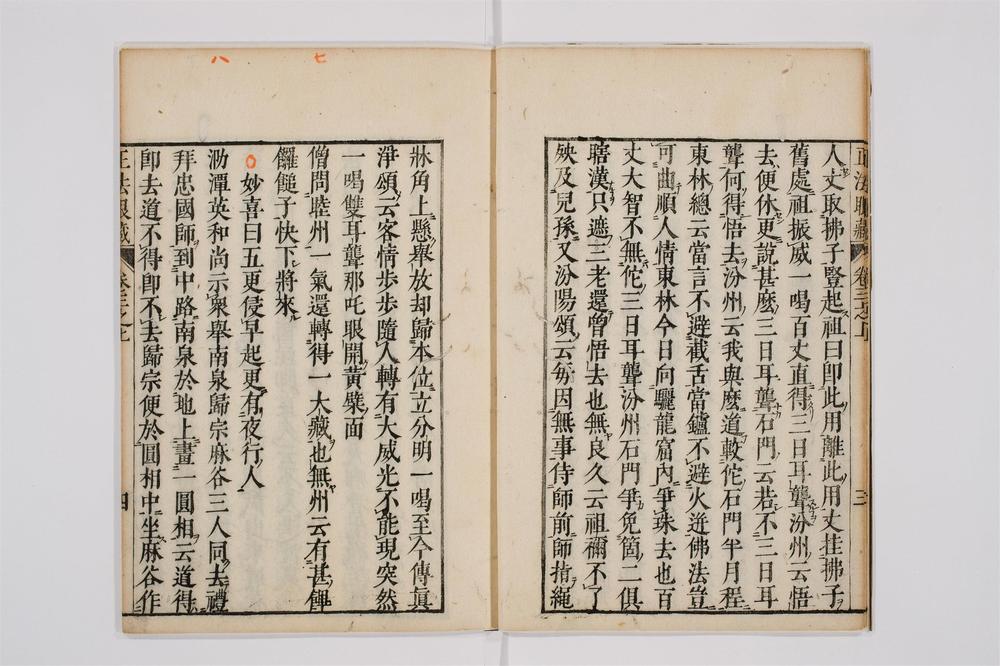 人丈取拂子豎起祖曰即此用離此用丈挂拂子
舊處祖振威一喝百丈直得三日耳聾汾州云悟
去便休更說甚麽三日耳聾石門云若不三日耳
聾何得悟去汾州云我與麽道較佗石門半月程
東林總云當言不避截舌當鑪不避火迸佛法豈
可曲順人情東林今日向驪龍窟內爭珠去也百
丈大智不無佗三日耳聾汾州石門爭免箇二俱
瞎漢只遮三老還曾悟去也無良久云祖禰不了
殃及兒孫又汾陽頌云每因無事侍師前師指繩
牀角上懸舉放却歸本位立分明一喝至今傳眞
淨頌云客情步步隨人轉有大威光不能現突然
一喝雙耳聾那吒眼開黃檗面
僧問睦州一氣還轉得一大藏也無州云有甚饆
饠䭔子快下將來
○妙喜曰五更侵早起更有夜行人
泐潭英和尚示衆舉南泉歸宗麻谷三人同去禮
拜忠國師到中路南泉於地上畫一圓相云道得
即去道不得即不去歸宗便於圓相中坐麻谷作
四
七
八